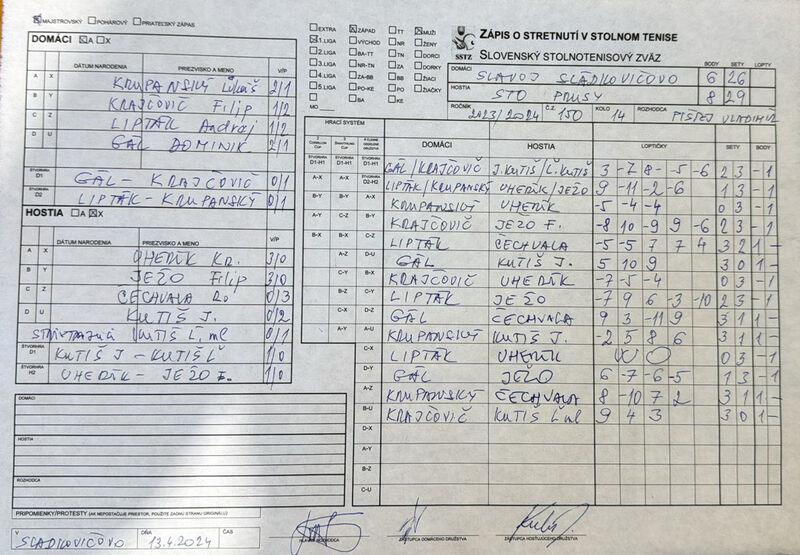 MAJSTROVSKÝ POHÁROVÝ PRIATEĽSKÝ ZÁPAS
DOMÁCI A X
DÁTUM NARODENIA PRIEZVISKO A MENO V/P
A X KRUPANSKÝ Lukáš 2/1
B Y KRAJČOVIČ Filip 1/2
C Z LIPTÁK Andrej 1/2
D U GÁL DOMINIK 2/1
ŠTVORHRA D1 GÁL - KRAJČOVIČ 0/1
ŠTVORHRA D2 LIPTÁK - KRUPANSKÝ 0/1
HOSTIA A X
DÁTUM NARODENIA PRIEZVISKO A MENO V/P
A X UHERÍK KR. 3/0
B Y JEŽO Filip 3/0
C Z ČECHVALA Ro 0/3
D U KUTIŠ J. 0/2
KUTIŠ Ľ. ml 0/1
ŠTVORHRA D1 KUTIŠ J - KUTIŠ Ľ 1/0
ŠTVORHRA H2 UHERÍK - JEŽO F. 1/0
DOMÁCI
HOSTIA
ROZHODCA
PRIPOMIENKY/PROTESTY (AK NEPOSTAČUJE PRIESTOR, POUŽITE ZADNÚ STRANU ORIGINÁLU)
V SLÁDKOVIČOVO DŇA 13.4.2024 ČAS
EXTRA ZÁPAD TT MUŽI
1.LIGA VÝCHOD NR ŽENY
2.LIGA BA-TT TN DORCI
3.LIGA NR-TN ZA DORKY
4.LIGA ZA-BB BB ŽIACI
5.LIGA PO-KE PO ŽIAČKY
MO BA KE
ZÁPIS O STRETNUTÍ V STOLNOM TENISE
SSTZ SLOVENSKÝ STOLNOTENISOVÝ ZVÄZ
BODY SETY LOPTY
DOMÁCI SLAVOJ SLÁDKOVIČOVO 6 26
HOSTIA STO PRUSY 8 29
ROČNÍK 2023/2024 Č.Z. 150 KOLO 14 ROZHODCA PIŠTEJ VLADIMÍR
HRACÍ SYSTÉM
DOMÁCI HOSTIA LOPTIČKY SETY BODY
D1-H1 D1-H1 GÁL/KRAJČOVIČ J.KUTIŠ/Ľ.KUTIŠ 3 -7 8 -5 -6 2 3 - 1
A-X A-X D2-H2 LIPTÁK/KRUPANSKÝ UHERÍK/JEŽO 9 -11 -2 -6 1 3 - 1
B-Y B-Y A-X KRUPANSKÝ UHERÍK -5 -4 -4 0 3 - 1
A-Y C-Z B-Y KRAJČOVIČ JEŽO F. -8 10 -9 9 -6 2 3 - 1
B-X B-X C-Z LIPTÁK ČECHVALA -5 -5 7 7 4 3 2 1 -
A-Z D-U GÁL KUTIŠ J. 5 10 9 3 0 1 -
C-Y B-X KRAJČOVIČ UHERÍK -7 -5 -4 0 3 - 1
B-Z C-Y LIPTÁK JEŽO -7 9 6 -3 -10 2 3 - 1
C-X D-Z GÁL ČECHVALA 9 3 -11 9 3 1 1 -
A-Y A-U KRUPANSKÝ KUTIŠ J. -2 5 8 6 3 1 1 -
C-X LIPTÁK UHERÍK WO 0 3 - 1
D-Y GÁL JEŽO 6 -7 -6 -5 1 3 - 1
A-Z KRUPANSKÝ ČECHVALA 8 -10 7 2 3 1 1 -
B-U KRAJČOVIČ KUTIŠ Ľ ml 9 4 3 3 0 1 -
D-X
A-Y
B-Z
C-U
ZÁSTUPCA DOMÁCEHO DRUŽSTVA
ZÁSTUPCA HOSŤUJÚCEHO DRUŽSTVA